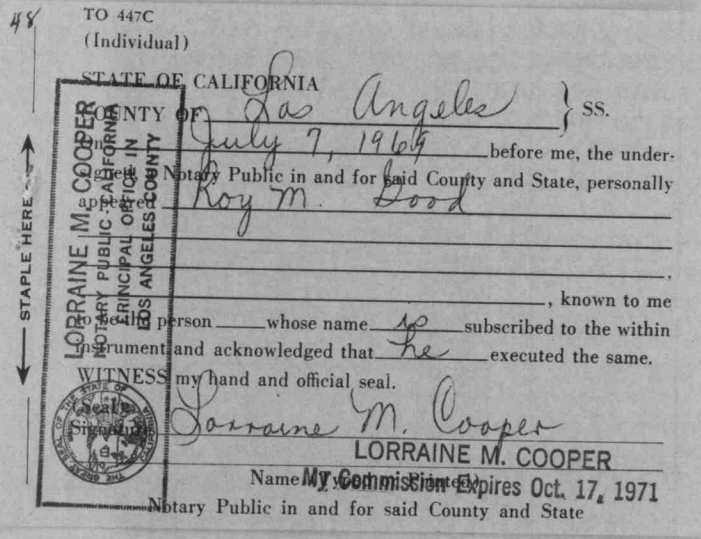 48
TO 447C
(Individual)
STATE OF CALIFORNIA
COUNTY OF Los Angeles } SS.
On July 7, 1969 before me, the under-
signed Notary Public in and for said County and State, personally
appeared Roy M. Good
, known to me
to be the person whose name is subscribed to the within
instrument and acknowledged that he executed the same.
WITNESS my hand and official seal.
(Seal)
Signature Lorraine M. Cooper
LORRAINE M. COOPER
Name (Typed or Printed)
My Commission Expires Oct. 17, 1971
Notary Public in and for said County and State
STAPLE HERE
LORRAINE M. COOPER
NOTARY PUBLIC-CALIFORNIA
PRINCIPAL OFFICE IN
LOS ANGELES COUNTY
THE GREAT SEAL OF THE STATE OF CALIFORNIA